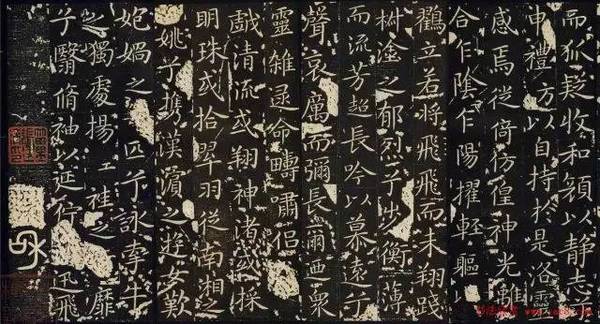 而狐疑收和顏以静志兮
申禮防以自持於是洛靈
感焉徙倚彷徨神光離
合乍陰乍陽擢輕軀以
鸖立若將飛飛而未翔踐
樹塗之郁烈兮步衡薄
而流芳超長吟以慕遠兮
聲哀厲而彌長爾迺衆
靈雜遝命疇嘯侣
戯清流或翔神渚或採
明珠或拾翠羽從南湘之
姚兮携漢濱之遊女歎
妑媧之匹兮詠牽牛
之獨處揚袿之靡
兮翳脩袖以延佇迅飛